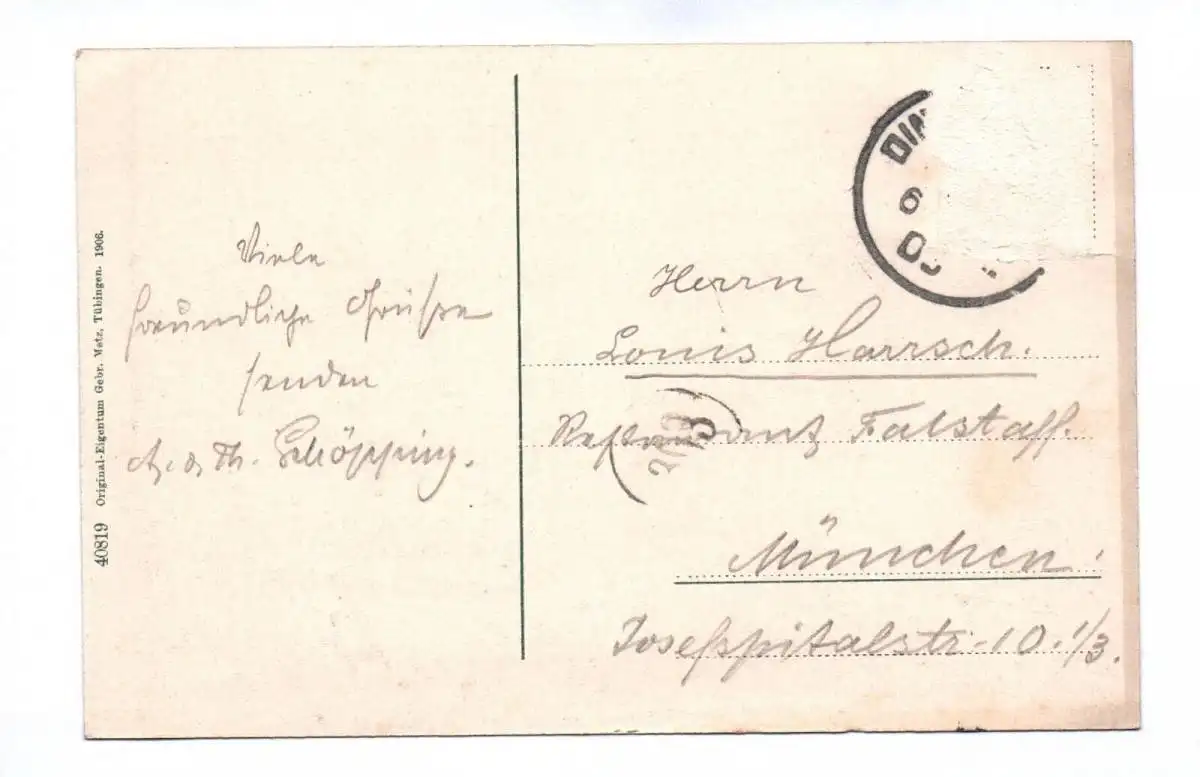 40819 Original-Eigentum Gebr. Metz, Tübingen. 1906.
Viele
freundliche Grüße
senden
Th. Schöpping.
DIN
6
Herrn
Louis Harrsch.
Falstaff.
München.
Josefspitalstr. 10. 1/3.